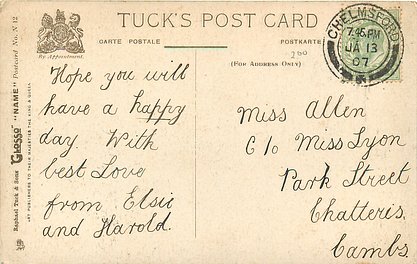 TUCK'S POST CARD
CARTE POSTALE
POSTKARTE
By Appointment.
(FOR ADDRESS ONLY)
200
CHELMSFORD
7.45 PM
JA 13
07
Hope you will
have a happy
day. With
best Love
from Elsie
and Harold.
Miss Allen
C/o Miss Lyon
Park Street
Chatteris.
Cambs.
Raphael Tuck & Sons' "GLOSSO" "NAME" Postcard No. N 12
ART PUBLISHERS TO THEIR MAJESTIES THE KING & QUEEN